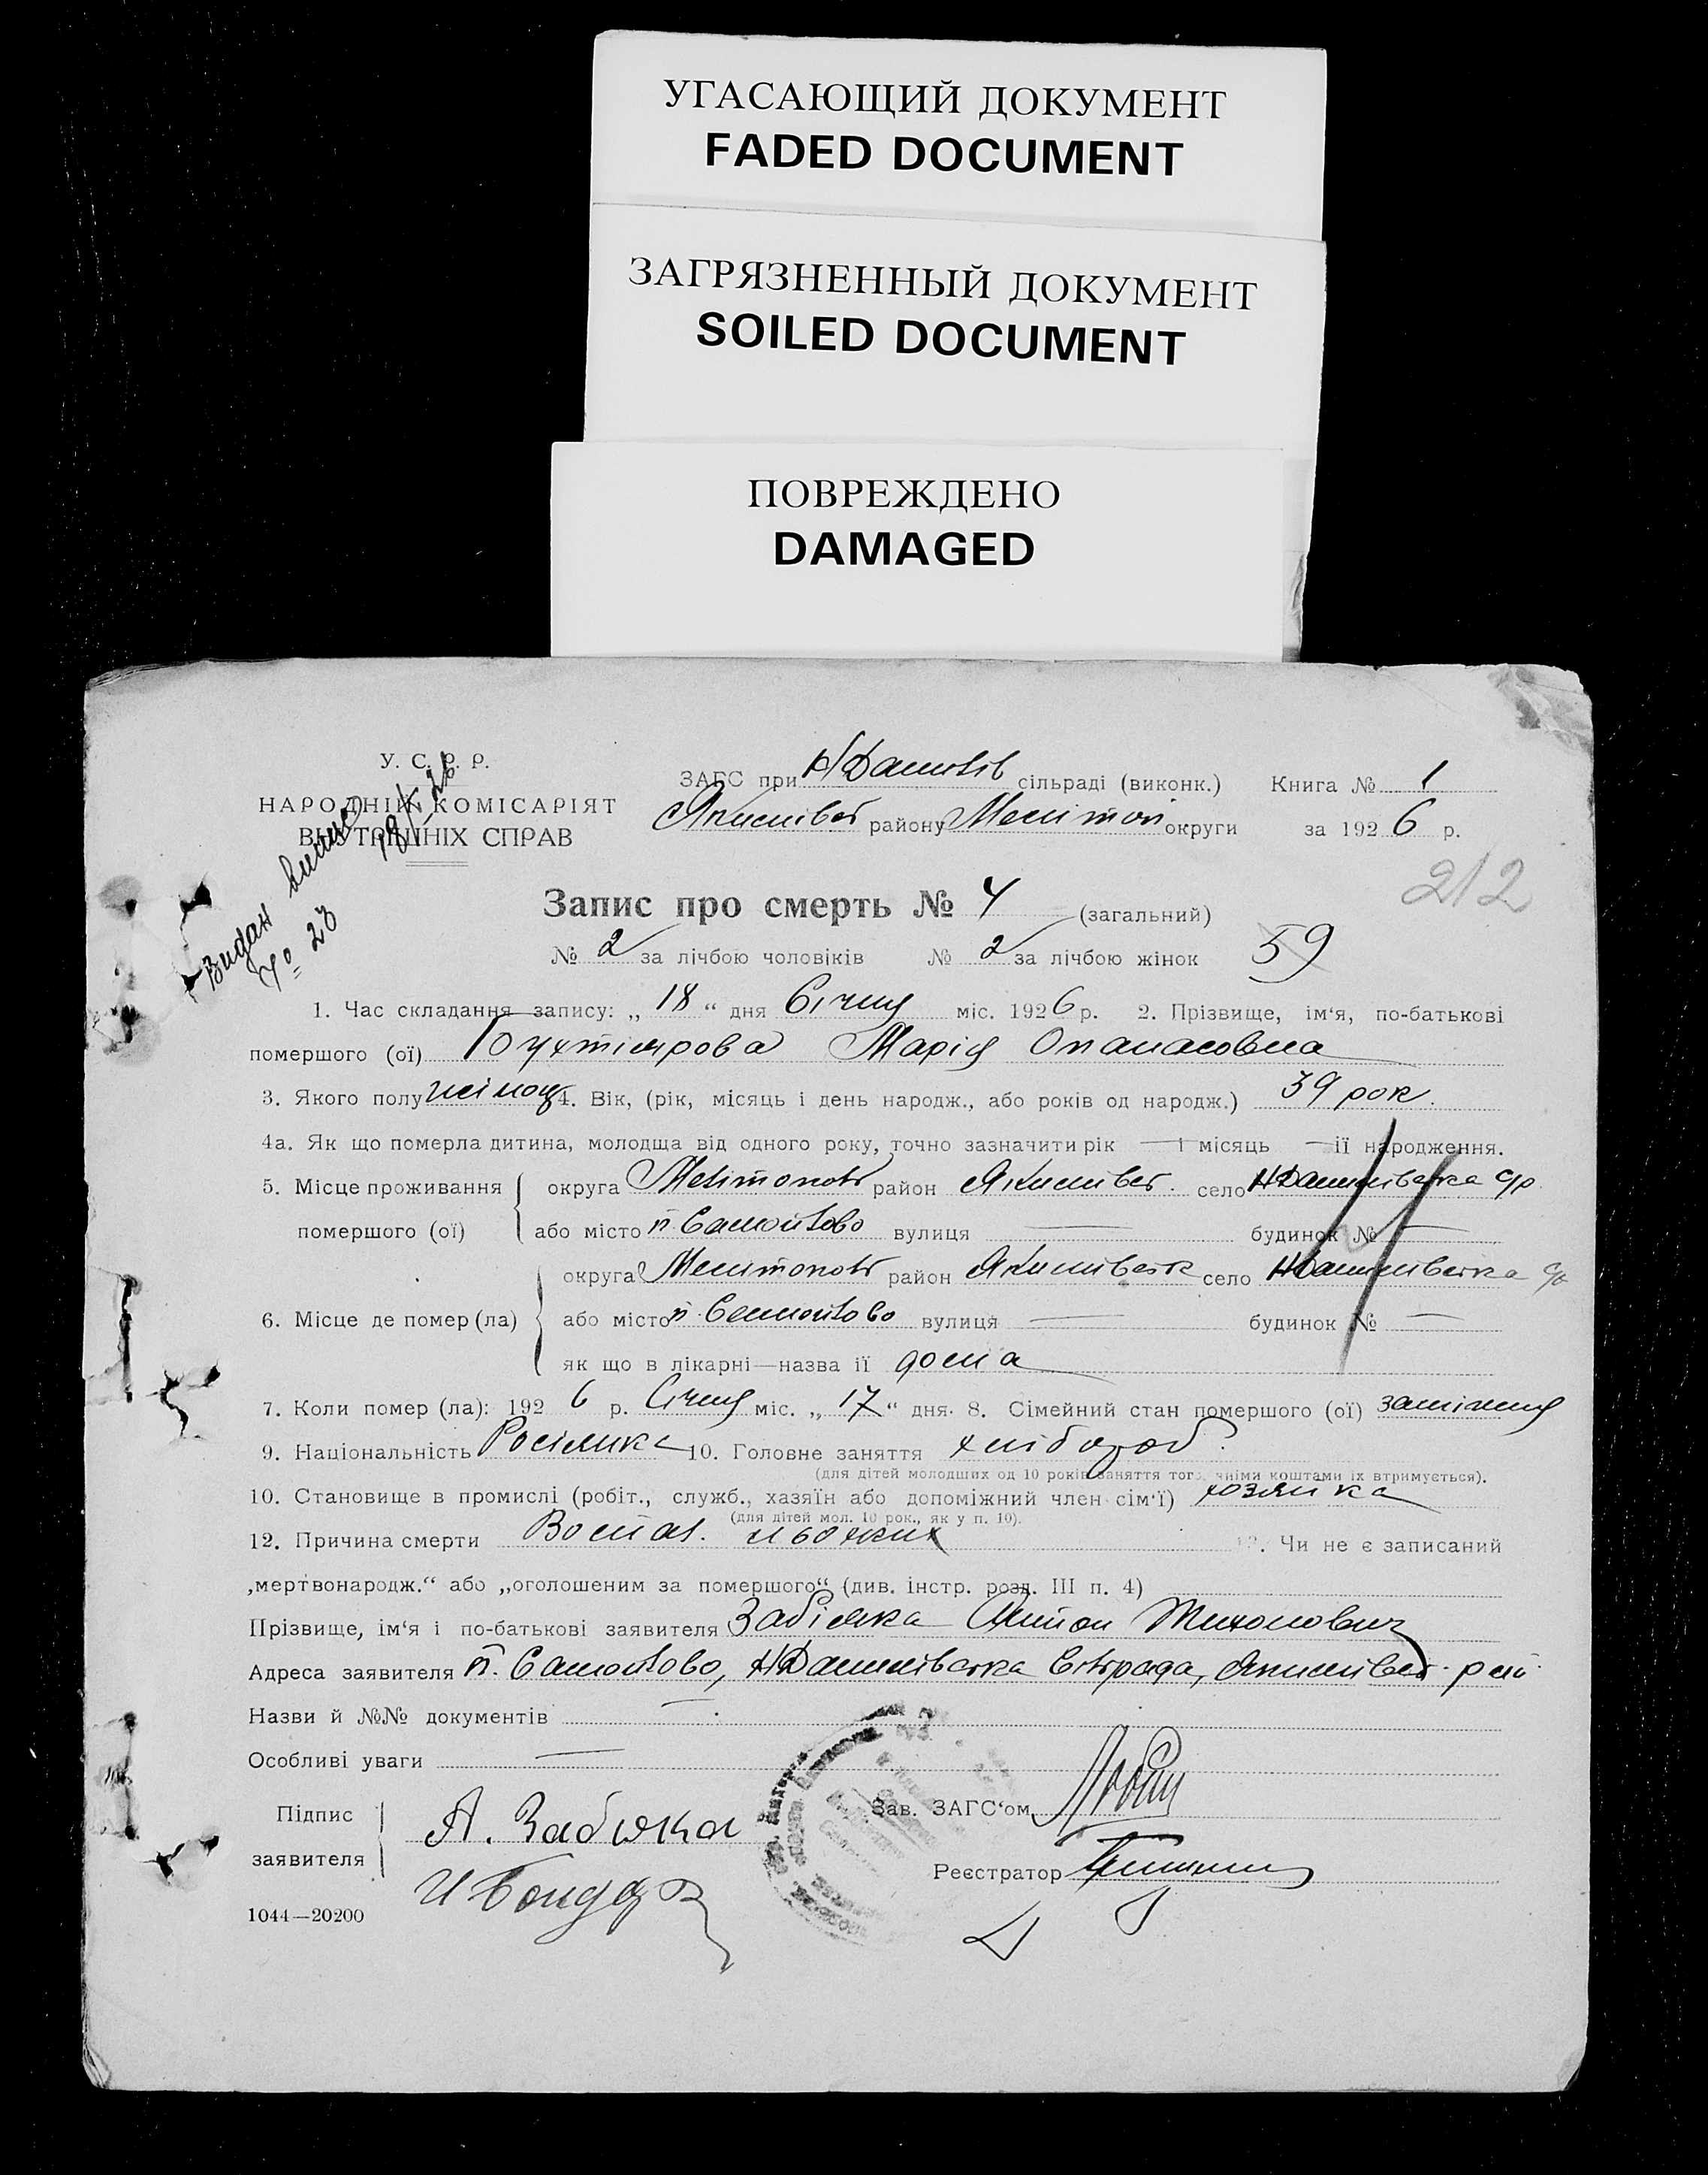 УГАСАЮЩИЙ ДОКУМЕНТ
FADED DOCUMENT
ЗАГРЯЗНЕННЫЙ ДОКУМЕНТ
SOILED DOCUMENT
ПОВРЕЖДЕНО
DAMAGED
У. С. Р. Р.
НАРОДНІЙ КОМІСАРІЯТ
ВНУТРІШНІХ СПРАВ
Видан
№ 28
ЗАГС при сільраді (виконк.) Книга № 1
району округи за 1926 р.
212
Запис про смерть № 4 (загальний)
№ 2 за лічбою чоловіків № 2 за лічбою жінок 59
1. Час складання запису: „ 18 “ дня Січня міс. 1926 р. 2. Прізвище, ім‘я, по-батькові
помершого (ої) Марія Опанасовна
3. Якого полу жіноч 4. Вік, (рік, місяць і день народж., або років од народж.) 39 рок.
4а. Як що померла дитина, молодща від одного року, точно зазначити рік — і місяць — ії народження.
5. Місце проживання округа район Якимівськ. село с/р
помершого (ої) або місто п. Самойлово вулиця — будинок № —
округа район Якимівськ село с/р
6. Місце де помер (ла) або місто п. Самойлово вулиця — будинок № —
як що в лікарні—назва ії дома
7. Коли помер (ла): 1926 р. Січня міс. „ 17 “ дня. 8. Сімейний стан помершого (ої) заміжня
9. Національність Росіянка 10. Головне заняття хлібороб.
(для дітей молодших од 10 років заняття того, чиїми коштами їх втримується).
10. Становище в промислі (робіт., служб., хазяїн або допоміжний член сім‘ї) хозяйка
(для дітей мол. 10 рок., як у п. 10).
12. Причина смерти Воспал. . Чи не є записаний
„мертвонародж.“ або „оголошеним за помершого“ (див. інстр. розд. III п. 4)
Прізвище, ім‘я і по-батькові заявителя Забіяка Антон Тихонович
Адреса заявителя п. Самойлово, Якимівськ. рай.
Назви й №№ документів —
Особливі уваги —
Підпис
заявителя
А. Забіяка
И Бондар
Зав. ЗАГС‘ом
Реєстратор
1044—20200